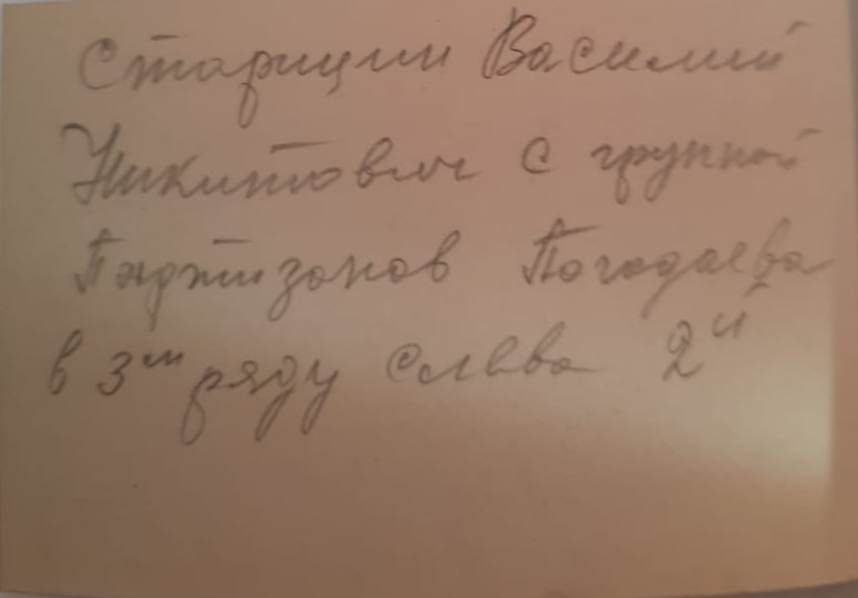 Старицин Василий
Никитович с группой
Партизанов Погодаева
в 3м ряду слева 2й